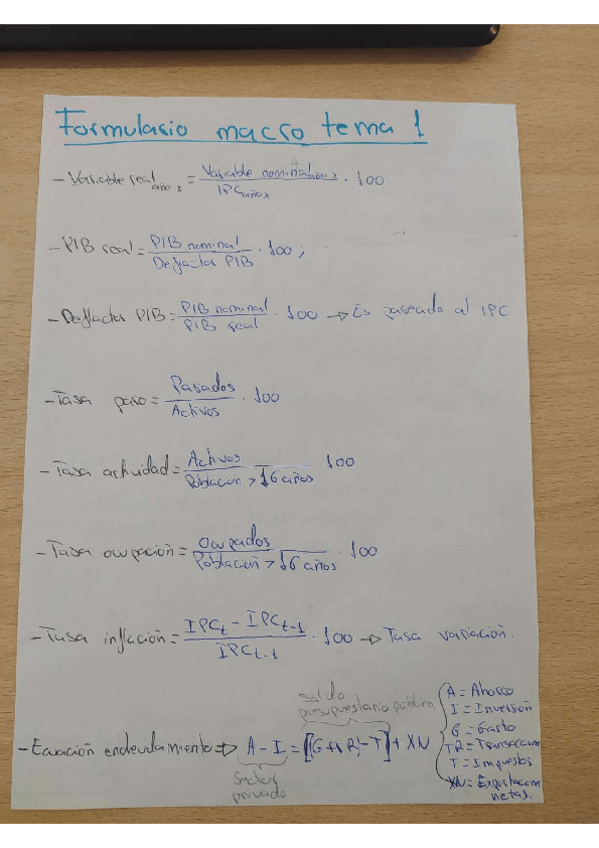 Formulario macro tema 1
- Variable real año x = Variable nominal año x / IPC año x · 100
- PIB real = PIB nominal / Deflactor PIB · 100 ;
- Deflactor PIB = PIB nominal / PIB real · 100 → Es paseado al IPC
- Tasa paro = Parados / Activos · 100
- Tasa actividad = Activos / Población > 16 años · 100
- Tasa ocupación = Ocupados / Población > 16 años · 100
- Tasa inflación = IPCt - IPCt-1 / IPCt-1 · 100 → Tasa variación.
saldo
presupuestario público
- Ecuación endeudamiento ⇒ A - I = [(G + TR) - T] + XN
Sector
privado
A = Ahorro
I = Inversión
G = Gasto
TR = Transferencias
T = Impuestos
XN = Exportaciones
netas.